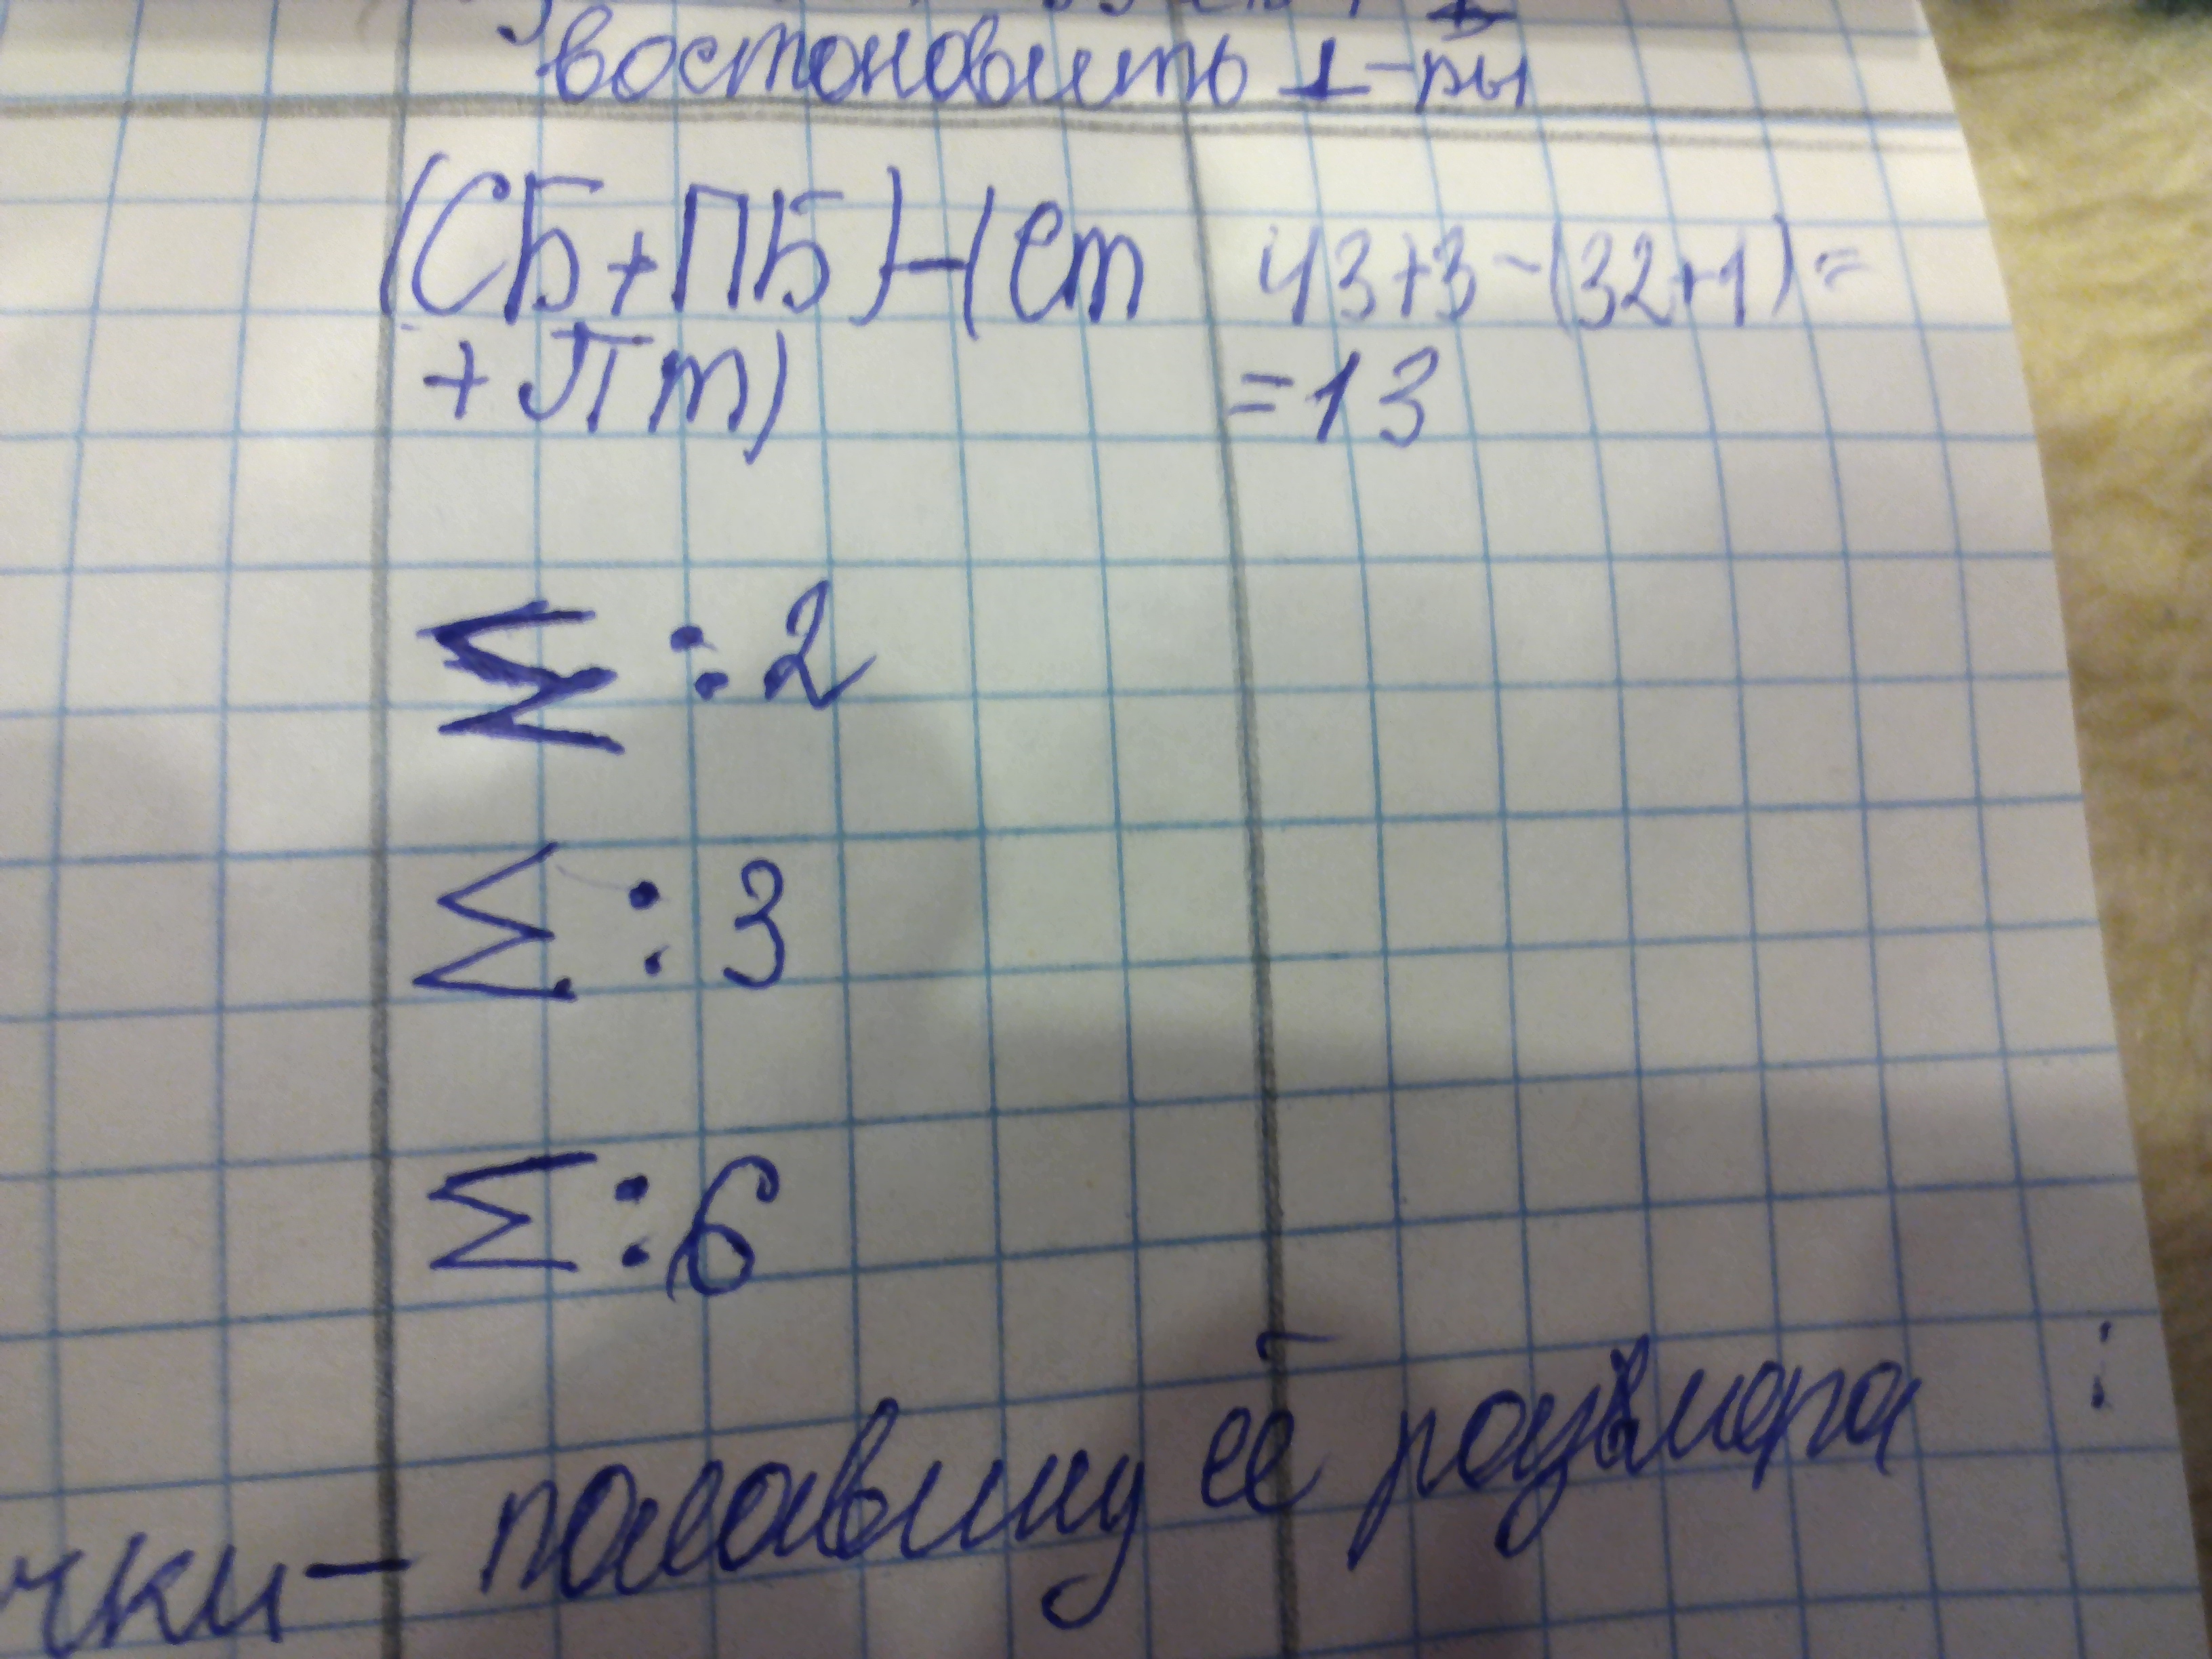 востоновить 1-ры
(СБ+ПБ)-(Ст 43+3-(32+1)=
+Пт) =13
Σ:2
Σ:3
Σ:6
чки - половину её